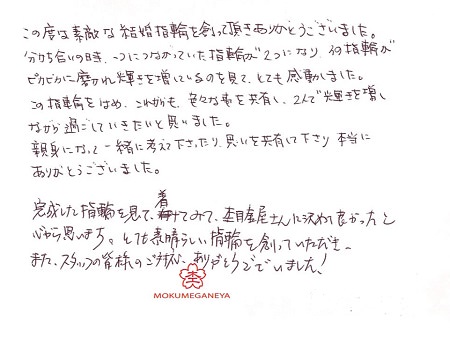 この度は素敵な結婚指輪を創って頂きありがとうございました。
分かち合いの時、一つにつながっていた指輪が2つになり、指輪が
ピカピカに磨かれ輝きを増しているのを見て、とても感動しました。
この指輪をはめ、これからも、色々な事を共有し、2人で輝きを増し
ながら過ごしていきたいと思いました。
親身になって一緒に考えて下さったり、思いを共有して下さり 本当に
ありがとうございました。
完成した指輪を見て、着けてみて、杢目金屋さんに決めて良かったと
心から思います。とても素晴らしい指輪を創っていただき、
また、スタッフの皆様のご対応、ありがとうございました!
MOKUMEGANEYA